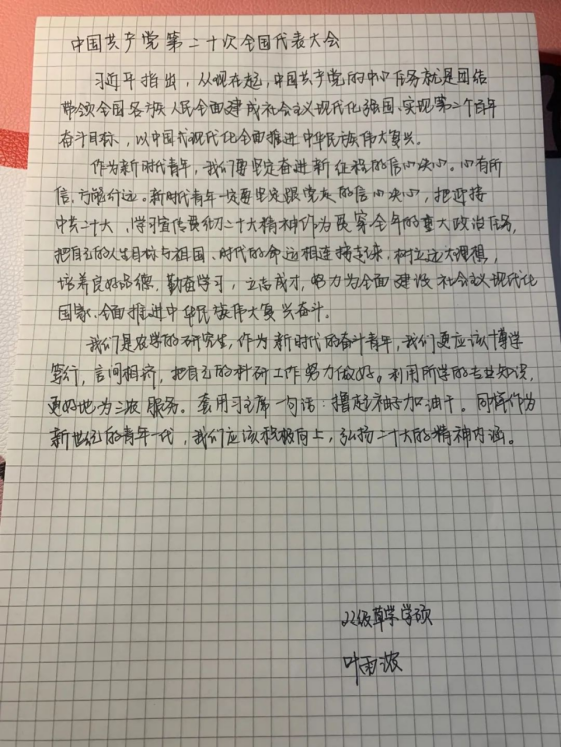 中国共产党第二十次全国代表大会
习近平指出，从现在起，中国共产党的中心任务就是团结
带领全国各族人民全面建成社会主义现代化强国、实现第二个百年
奋斗目标，以中国式现代化全面推进中华民族伟大复兴。
作为新时代青年，我们要坚定奋进新征程的信心决心。心有所
信，方能行远。新时代青年一定要坚定跟党走的信心决心，把迎接
中共二十大，学习宣传贯彻二十大精神作为贯穿全年的重大政治任务，
把自己的人生目标与祖国、时代的命运相连接起来，树立远大理想，
培养良好品德，勤奋学习，立志成才，努力为全面建设社会主义现代化
国家、全面推进中华民族伟大复兴奋斗。
我们是农学的研究生，作为新时代的奋斗青年，我们更应该博学
笃行，言问相济，把自己的科研工作努力做好。利用所学的专业知识，
更好地为三农服务。套用习主席一句话：撸起袖子加油干。同样作为
新世纪的青年一代，我们应该积极向上，弘扬二十大的精神内涵。
22级草学学硕
叶雨浓